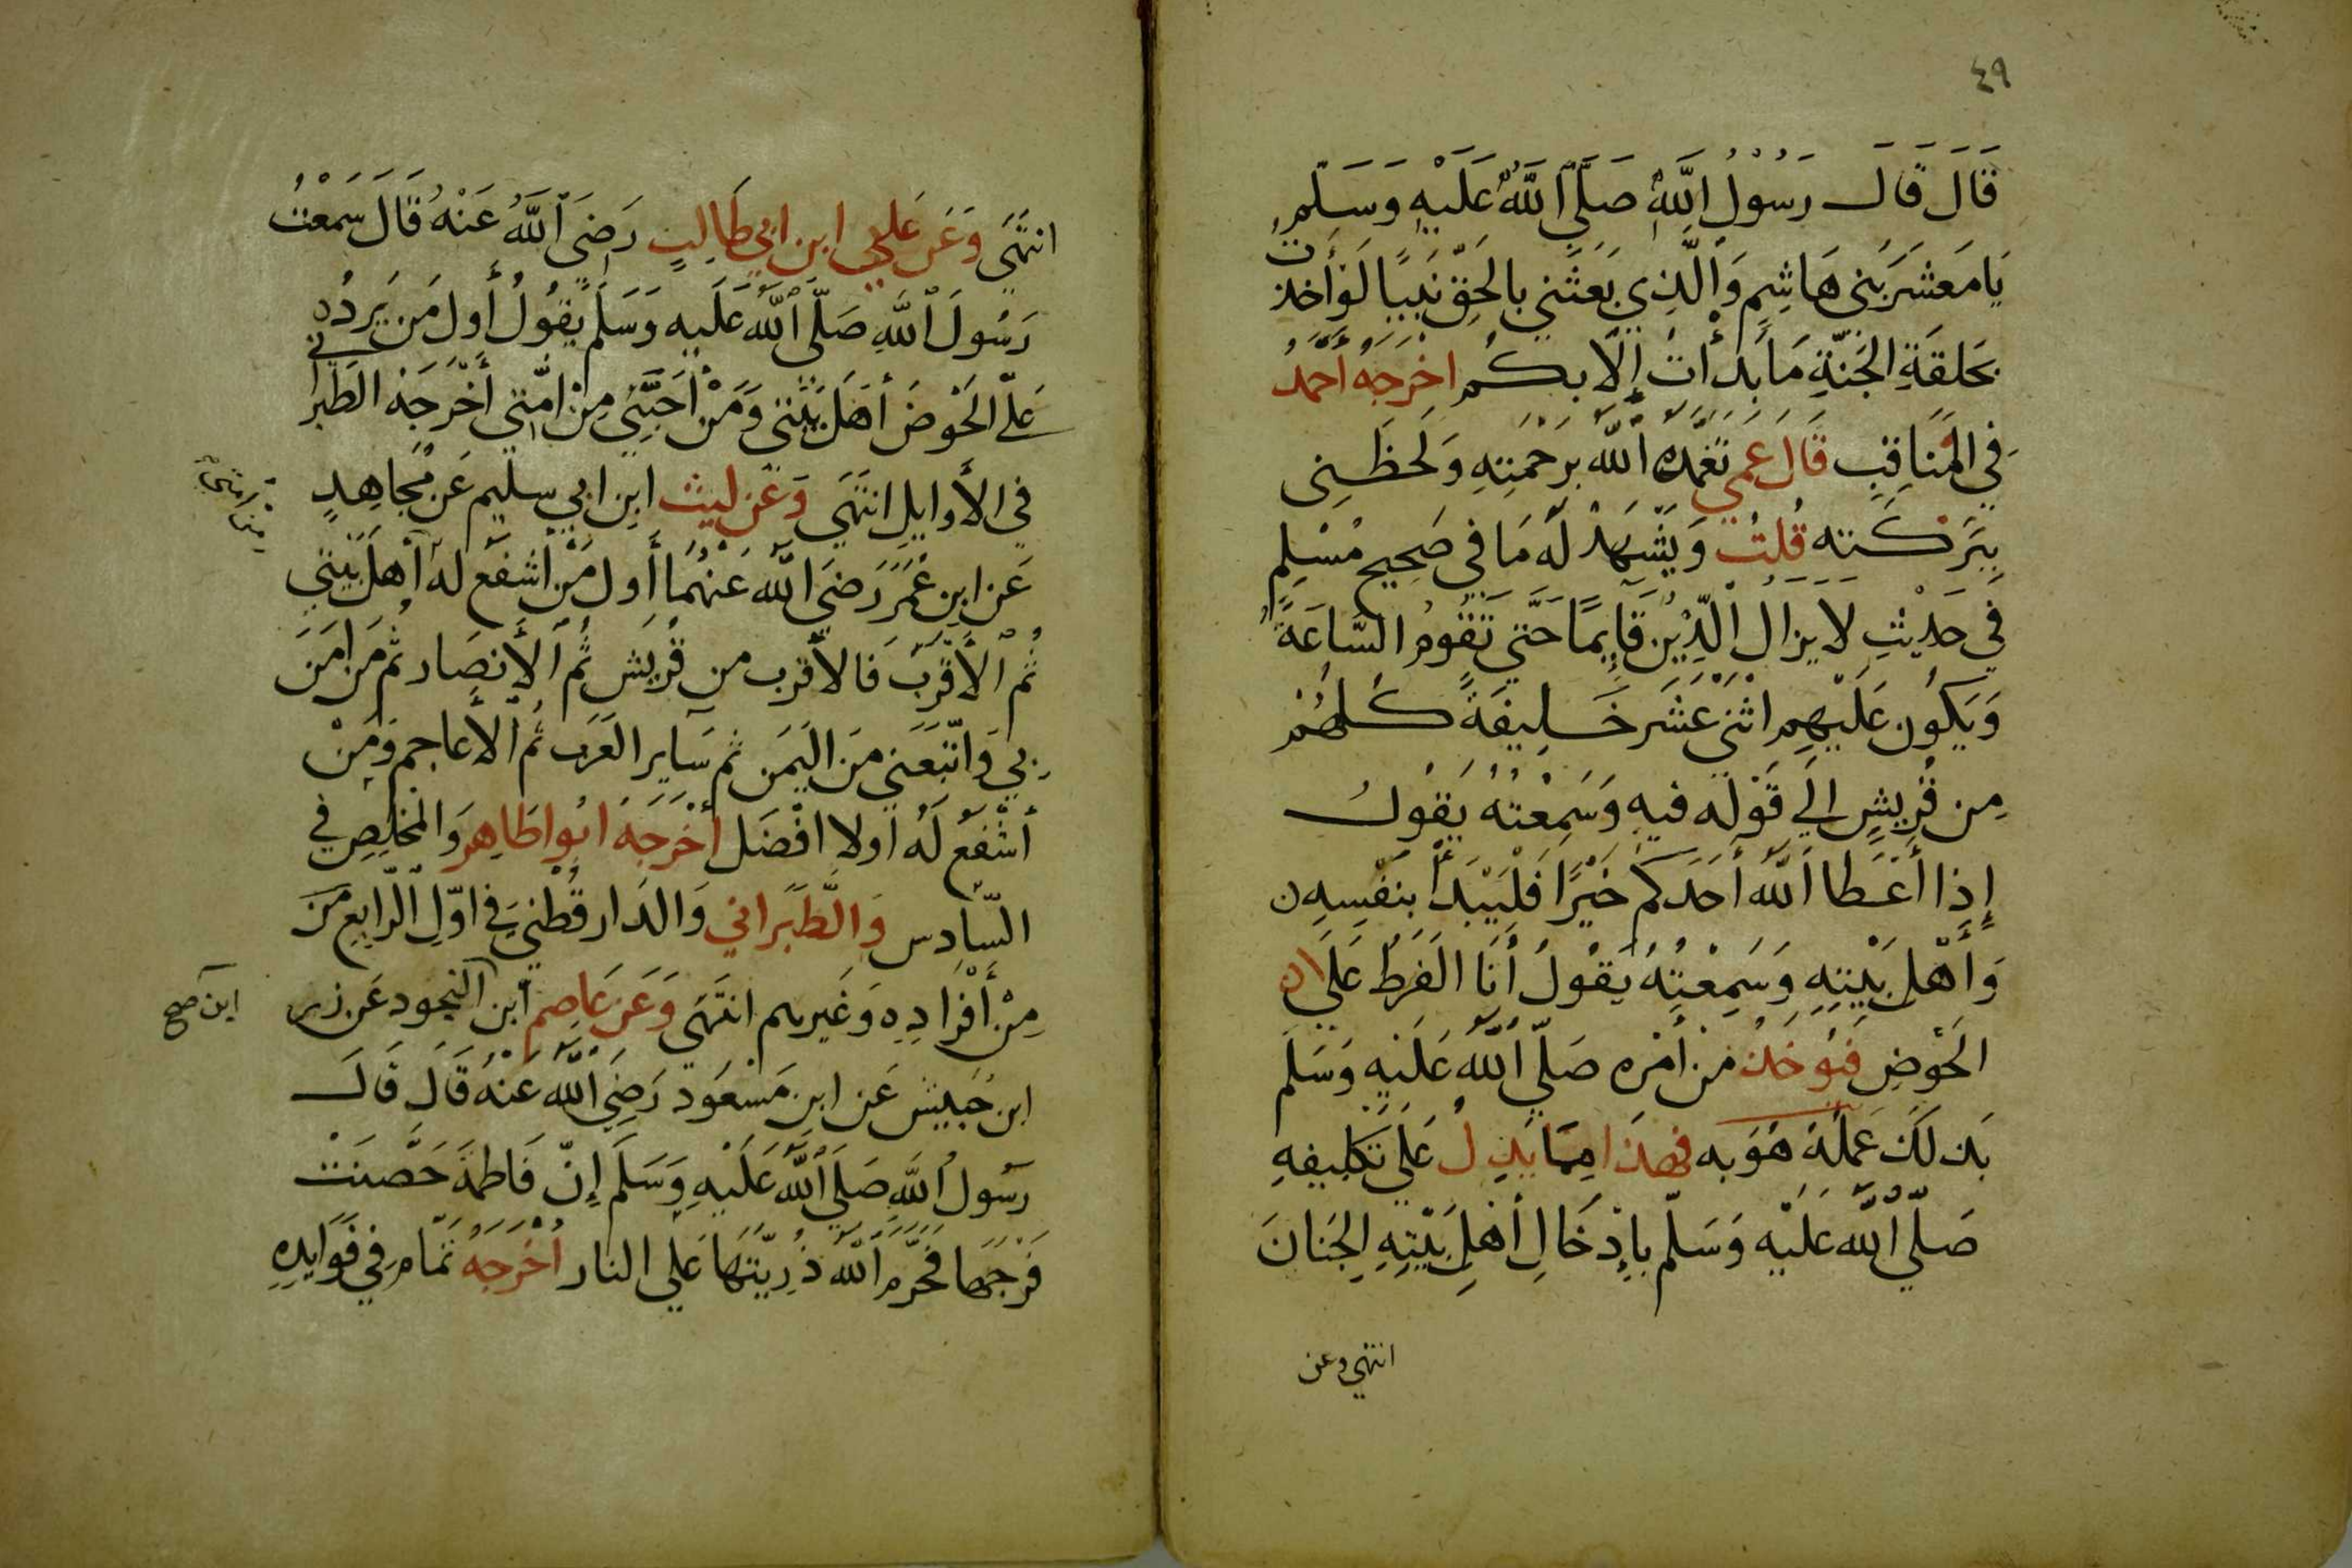 ٤٩
قَالَ قَالَ رَسُولُ اللَّهِ صَلَّى اللَّهُ عَلَيْهِ وَسَلَّمَ
يَا مَعْشَرَ بَنِي هَاشِمٍ وَالَّذِي بَعَثَنِي بِالْحَقِّ نَبِيًا لَوْ أَخَذْتُ
بَحَلقَةِ الجَنَّةِ مَا بَدَأتُ إِلَّا بِكُم اخْرَجَهُ أَحْمَدُ
فِي المَنَاقِبِ قَالَ عَمِي تَغَمَّدَهُ اللَّهُ بِرَحْمَتِهِ وَلَحَظَنِي
بِبَرَكَتِه قُلتُ وَيَشْهَدُ لَهُ مَا فِي صَحِيحِ مُسْلِمٍ
فِي حَدِيْثِ لَا يزَالُ الدِّيْنُ قَايِمًا حَتَّى تَقُومُ السَّاعَةُ
وَيَكُونَ عَلَيْهِم اثْنَي عَشَر خَلِيفَةً كُلُّهُم
مِن قُرَيشٍ إِلَي قَوْلِه فِيهِ وَسَمِعْتُهُ يَقُولُ
إِذَا أَعْطَا اللَّهُ أَحَدَكُم خَيْرًا فَلْيَبْدَأْ بِنَفْسِهِ
وَأَهْلِ بَيْتِهِ وَسَمِعْتُهُ يَقُولُ أَنَا الفَرَطُ عَلَي
الحَوْضِ فَيُوخَذ مِن أَمْرِه صَلَّي اللَّهُ عَلَيْهِ وَسَلَّم
بَذلَكَ عَمَلَهُ هُوَ به فهَذَا مِمَّا يَدُلُ عَلَي تَكلِيفِهِ
صَلَّي اللَّهُ عَلَيْه وَسَلَّم بِإِدْخَالِ أَهْلِ بَيْتِهِ الجَنَانَ
انتهي وعن
انتَهَي وَعَن عَلي ابن ابي طَالِبٍ رَضيَ اللَّهُ عَنْهُ قَالَ سَمِعْتُ
رَسُولَ اللَّهِ صَلَّى اللَّهُ عَلَيهِ وَسَلَم يَقُولُ أَول مَن يَرِدُ
عَلَيّ الحَوْضَ أَهْلَ بَيْتِي وَمَنْ أَحَبَّنِي مِنْ امَّتِي أَخْرَجَهُ الطَبرانِي
فِي الأَوايلِ انتَهَي وَعَن لَيث ابن ابي سليم عَن مُجَاهِدٍ
عَن ابن عُمَرَ رَضيَ اللَّه عَنْهُمَا أَول مَنْ أشفَع لَه أهلَ بَيْتِي
ثُم الأَقْرَبَ فَالأقرب من قُرَيش ثُم الأَنصَار ثم مَن امَن
بِي وَاتَّبَعَنِي مِنَ اليَمَن ثم سَايِرِ العَرَب ثُم الأَعَاجِم وَمَنْ
أَشْفَعُ لَهُ أولا افْضَل أَخْرَجَهُ ابُوا طَاهِر وَالمُخَلِصِ فِي
السَّادِس وَالطَّبَرَانِي وَالدَار قُطْنِي فِي اوّلِ الرَّابِعِ مَنَ
مِنْ أَفْرَادِهِ وَغَيرهم انتَهَي وَعَن عَاصِم ابن النجود عَن زر
ابن صح
ابن حُبَيش عَن ابن مَسْعُود رَضِيَ اللَّهُ عَنْهُ قَالَ قَالَ
رَسُول اللَّهِ صَلَي اللَّهُ عَلَيْهِ وَسَلَم إِنّ فَاطمَة حَصَّنَتْ
فَرْجَهَا فَحَرَّم اللَّه ذُرِيَّتَهَا عَلَي النار أَخْرَجَهُ تَمَّام فِي فَوَايدِهِ